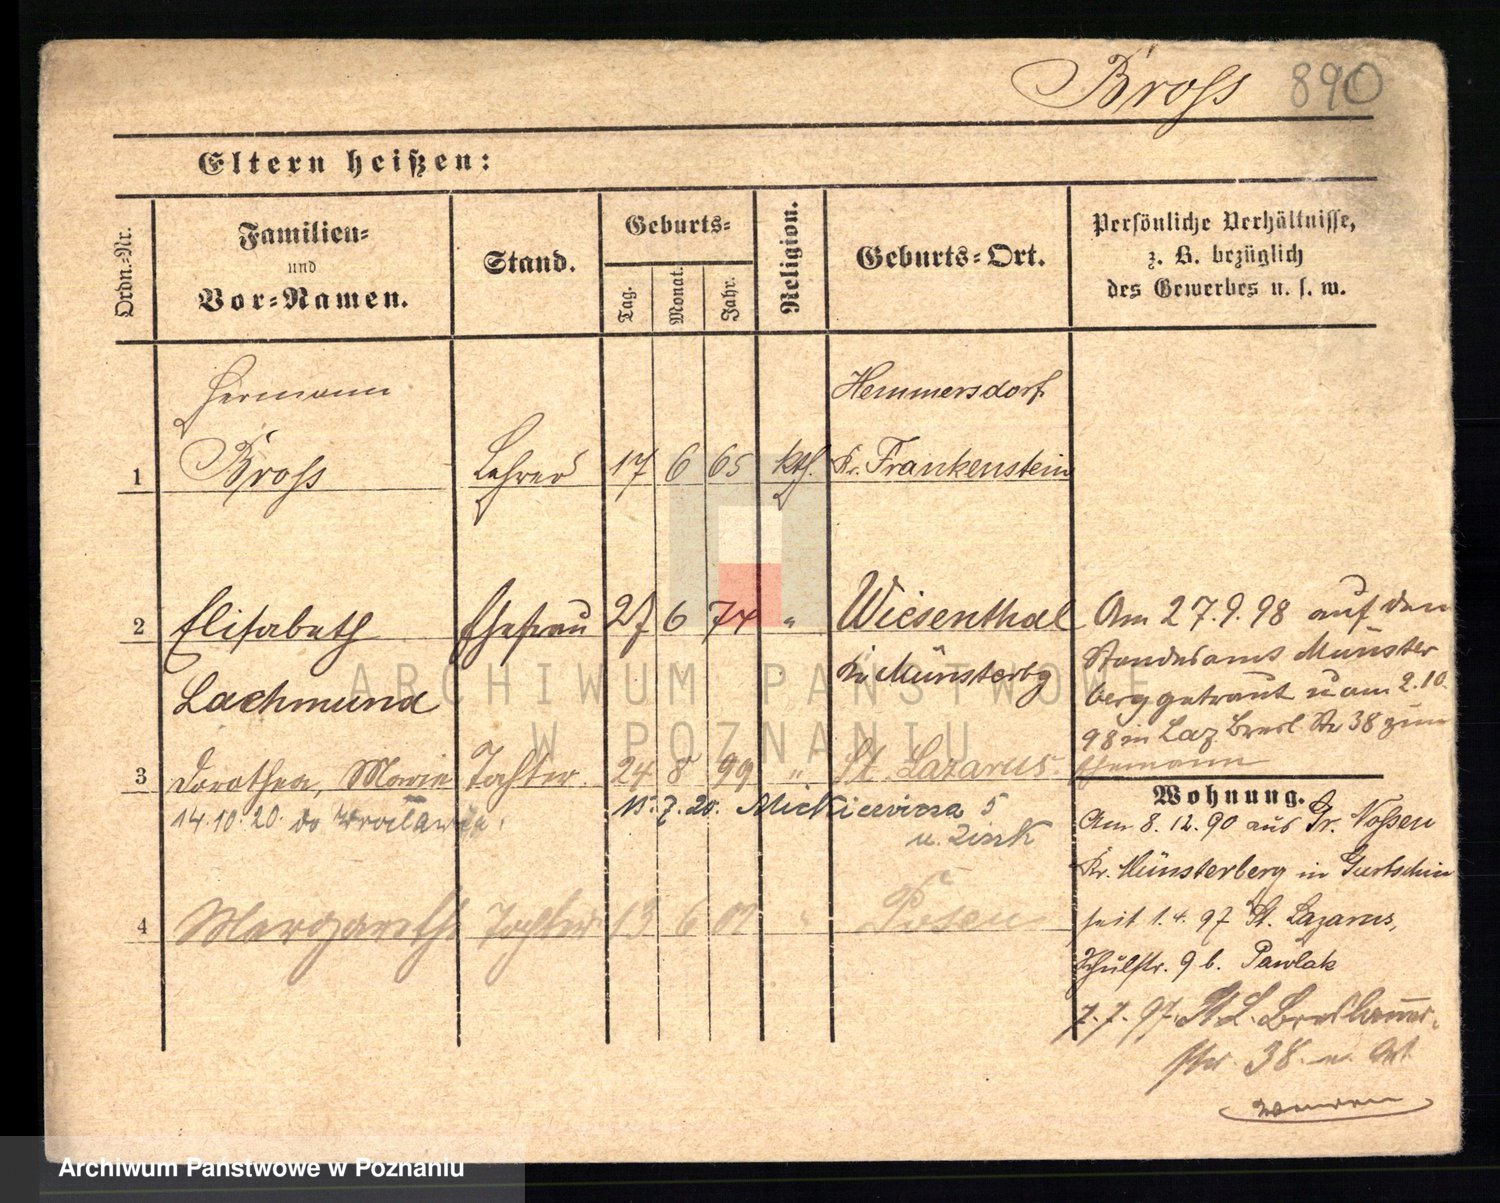 Bross 890
Eltern heißen:
Ordn.-Nr.
Familien-
und
Vor-Namen.
Stand.
Geburts-
Tag.
Monat.
Jahr.
Religion.
Geburts-Ort.
Persönliche Verhältnisse,
z. B. bezüglich
des Gewerbes u. s. w.
Hermann
Hemmersdorf
1 Bross Lehrer 17 6 65 kth. Kr. Frankenstein
2 Elisabeth Ehefrau 27 6 74 " Wiesenthal
Lachmund Kr Münsterbg
Am 27.9.98 auf dem
Standesamt Münster
berg getraut u am 2.10.
98 in Laz Bresl. Str 38 zum
Ehemann
3 Dorothea, Marie Tochter. 24 8 99 " St. Lazarus.
14.10.20. do Wrocławia. 15.7.20. Mickiewicza 5
u. Zisik
4 Margarethe Tochter 13 6 01 " Posen
Wohnung.
Am 8.12.90 aus Gr. Nossen
Kr. Münsterberg in Gurtschin
seit 1.4.97 St. Lazarus,
Schulstr. 9 b. Pawlak
7.7.97. St L. Breslauer-
str. 38.
ARCHIWUM PAŃSTWOWE
W POZNANIU
Archiwum Państwowe w Poznaniu